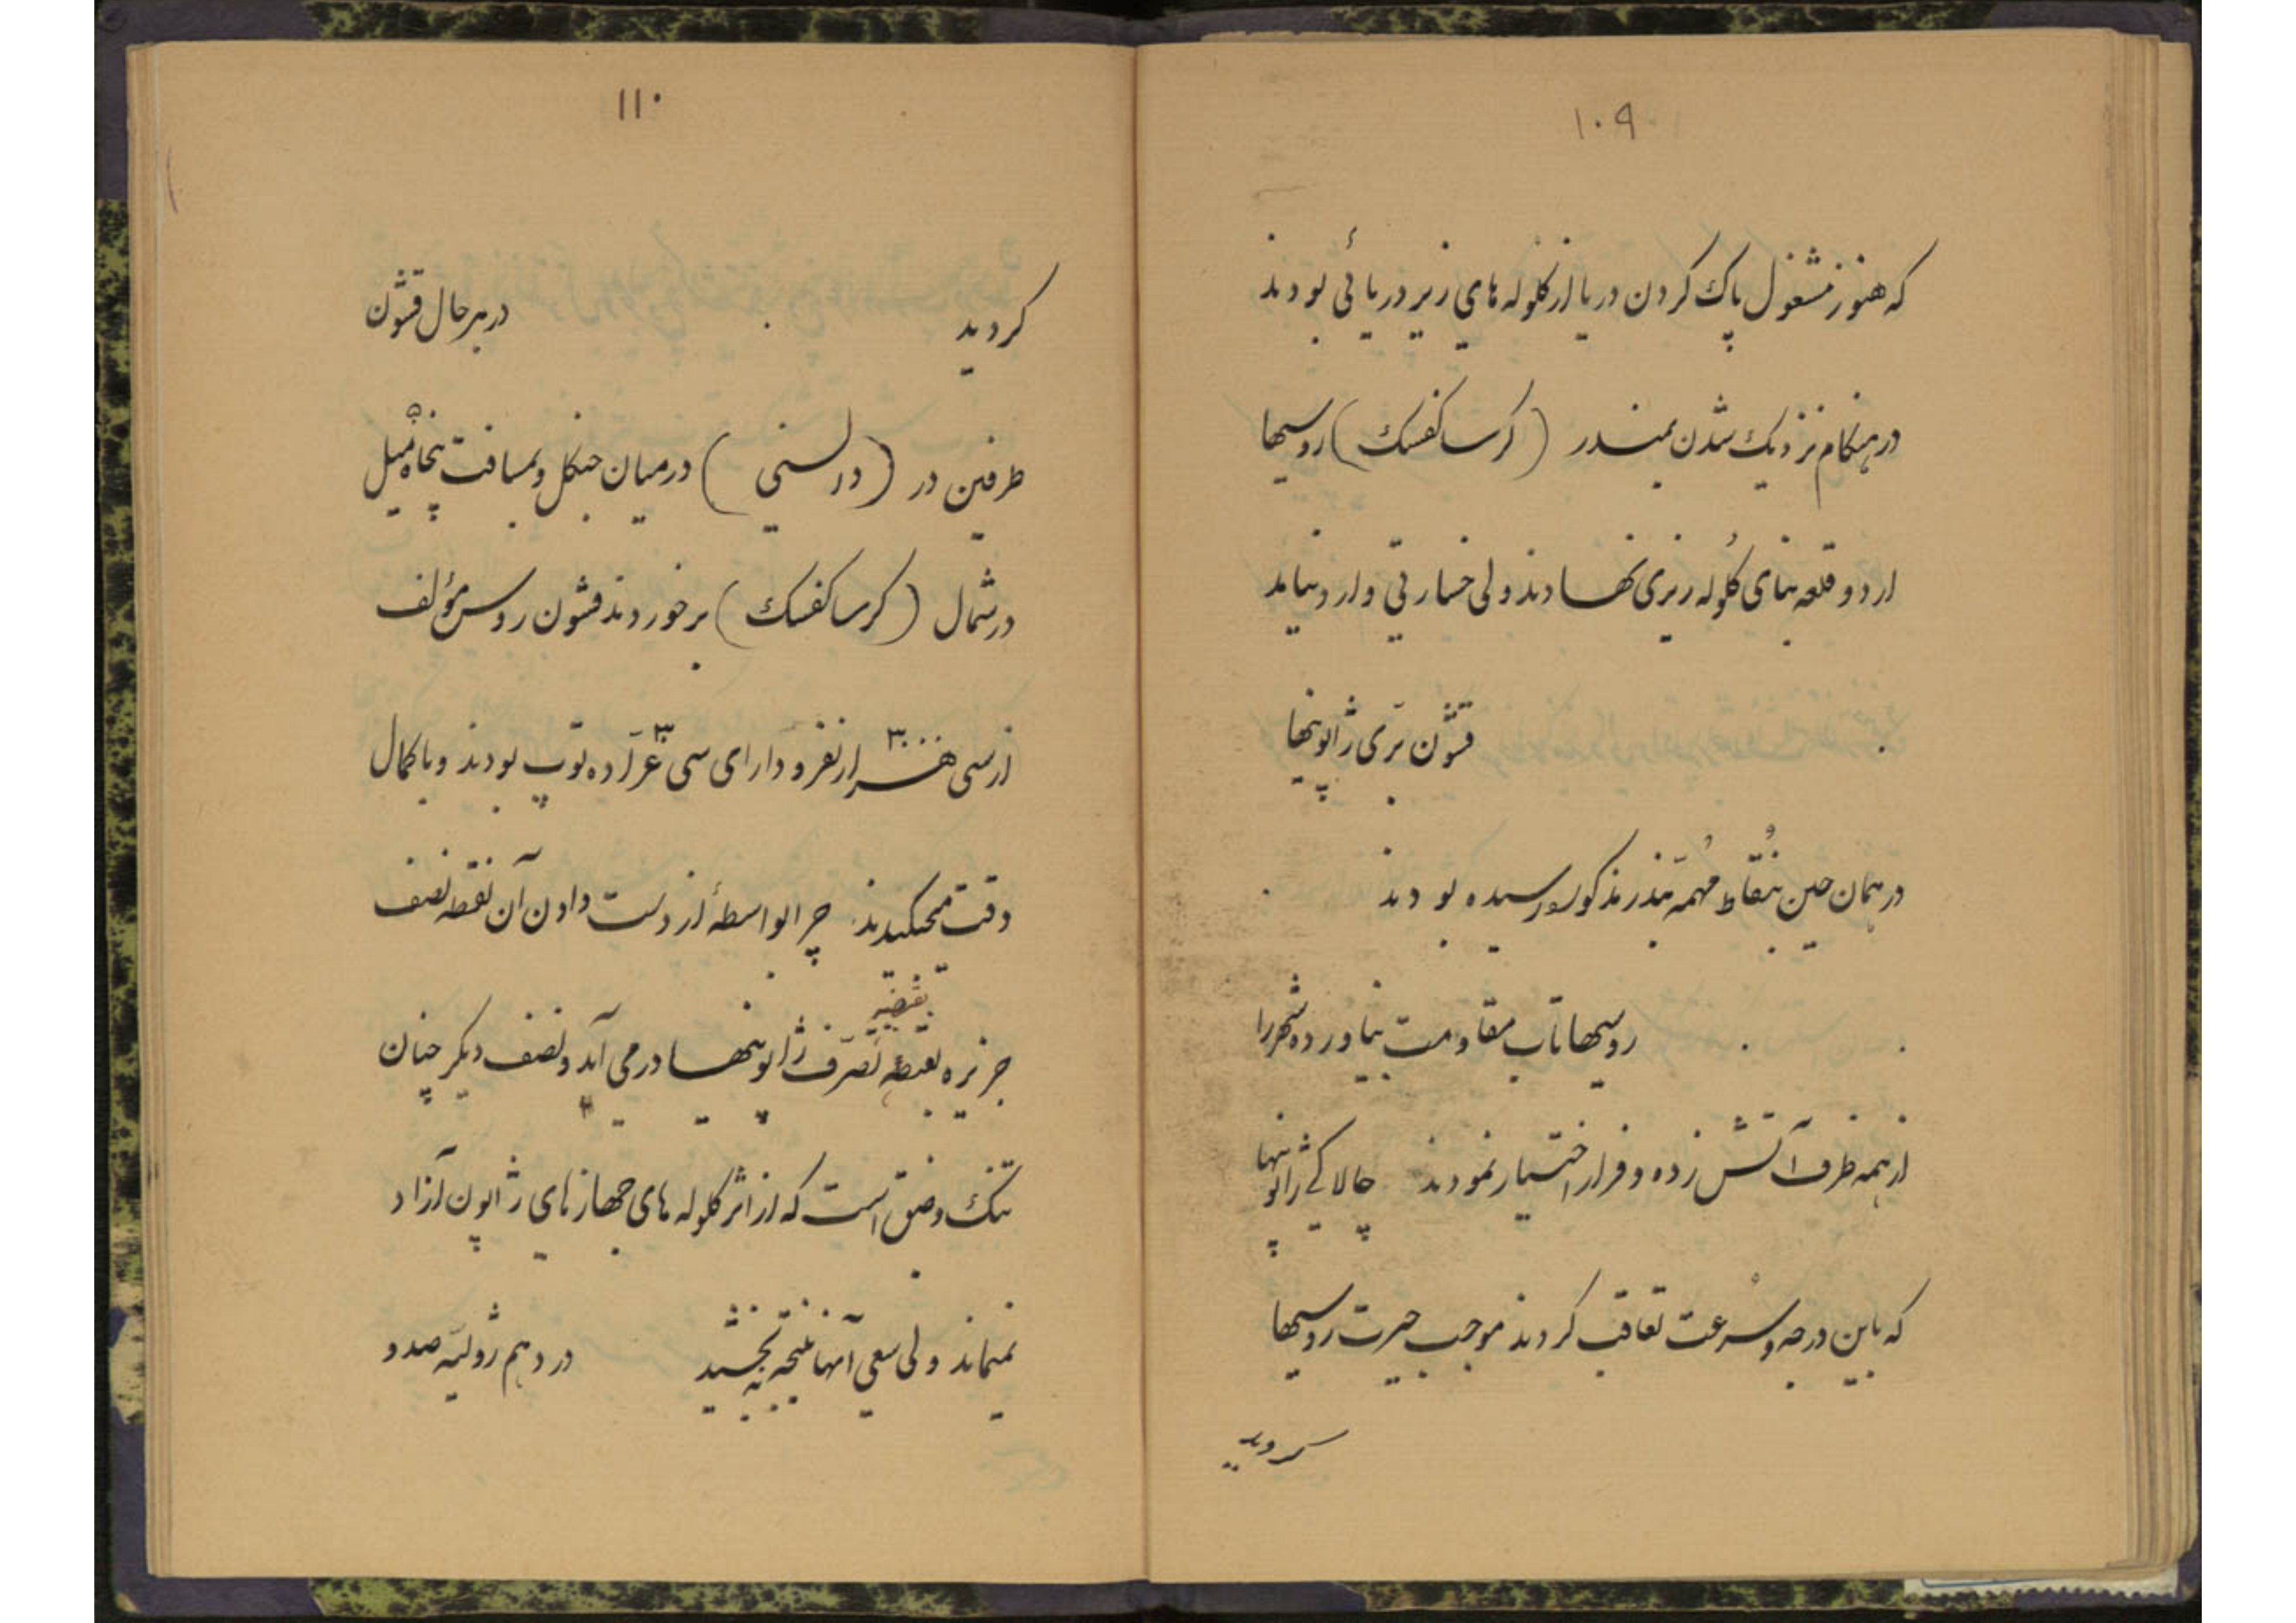 ۱۰۹
که هنوز مشغول پاک کردن دریا از کلوله های زیر دریائی بودند
در هنکام نزدیک شدن ببندر (کرساکفسک) روسیها
از دو قلعه بنای کلوله ریزی نهادند ولی خسارتی وارد نیامد
قشون بری ژاپونیها
در همان حین بنقاط مهمه بندر مذکور رسیده بودند
روسیها تاب مقاومت نیاورده شهر را
از همه طرف آتش زده و فرار اختیار نمودند چالاکی ژاپونیها
که باین درجه و سرعت تعاقب کردند موجب حیرت روسیها
کردید
۱۱۰
کردید در هر حال قشون
طرفین در (در لسنی) در میان جنکل و بمسافت پنجاه ۵۰ میل
در شمال (کرساکفسک) بر خوردند قشون روس مؤلف
از سی هزار ۳۰۰۰۰ نفر و دارای سی ۳۰ عراده توپ بودند و با کمال
دقت میجنکیدند چرا بواسطۀ از دست دادن آن نقطه نصف
بقبضه
جزیره تصرف ژاپونیها در می آید و نصف دیکر چنان
تنک و ضیق است که از اثر کلوله های جهازهای ژاپون آزاد
نمیماند ولی سعی آنها نتیجه نبخشید در دهم ژولیه صد و